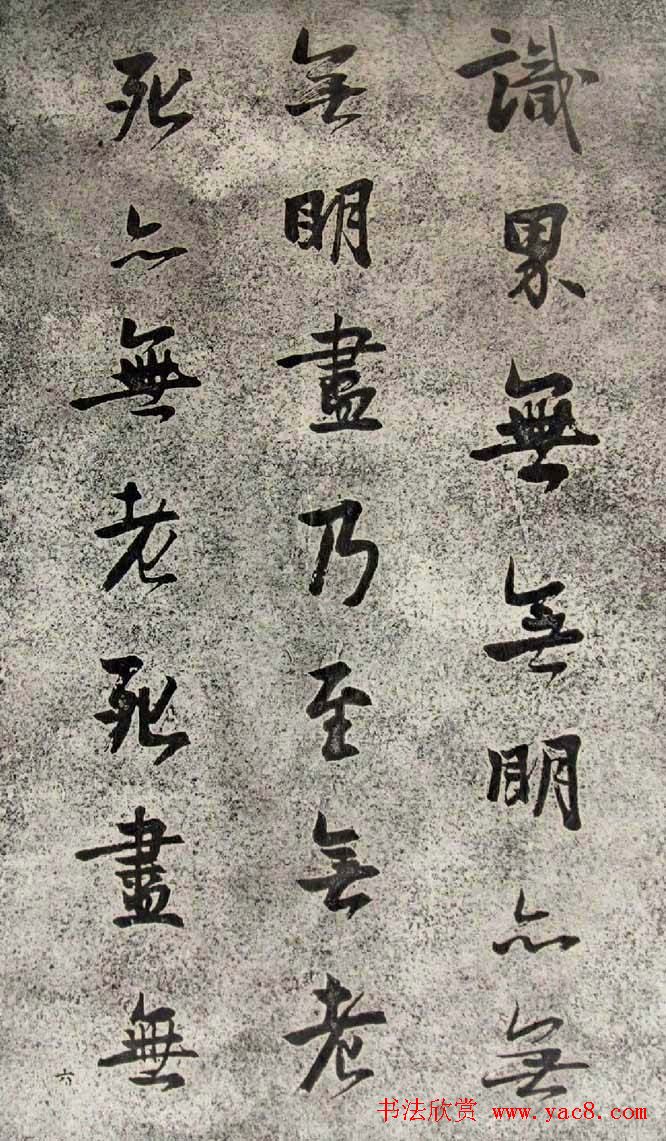 識界無無明亦無
無明盡乃至無老
死亦無老死盡無
六
书法欣赏 www.yac8.com